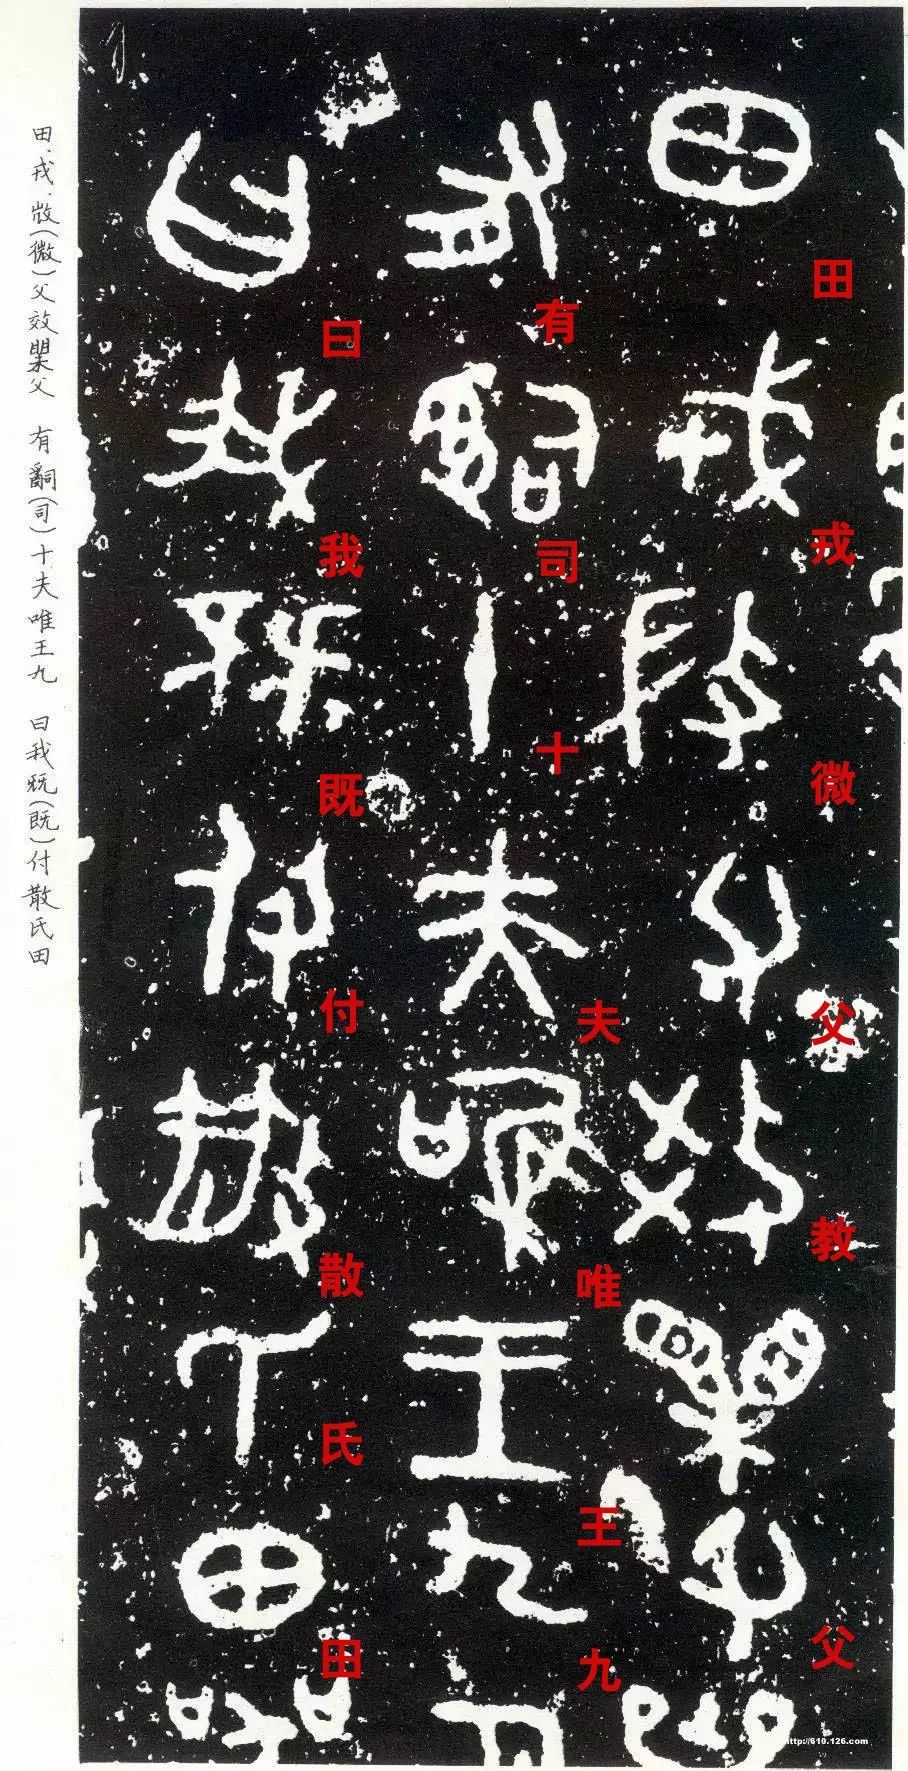 田戎微父教父
有司十夫唯王九
曰我既付散氏田
田、戎、𢼸(微)父效𣊫父 有𤔲(司)十夫唯王九 曰我既(既)付散氏田
http://610.126.com